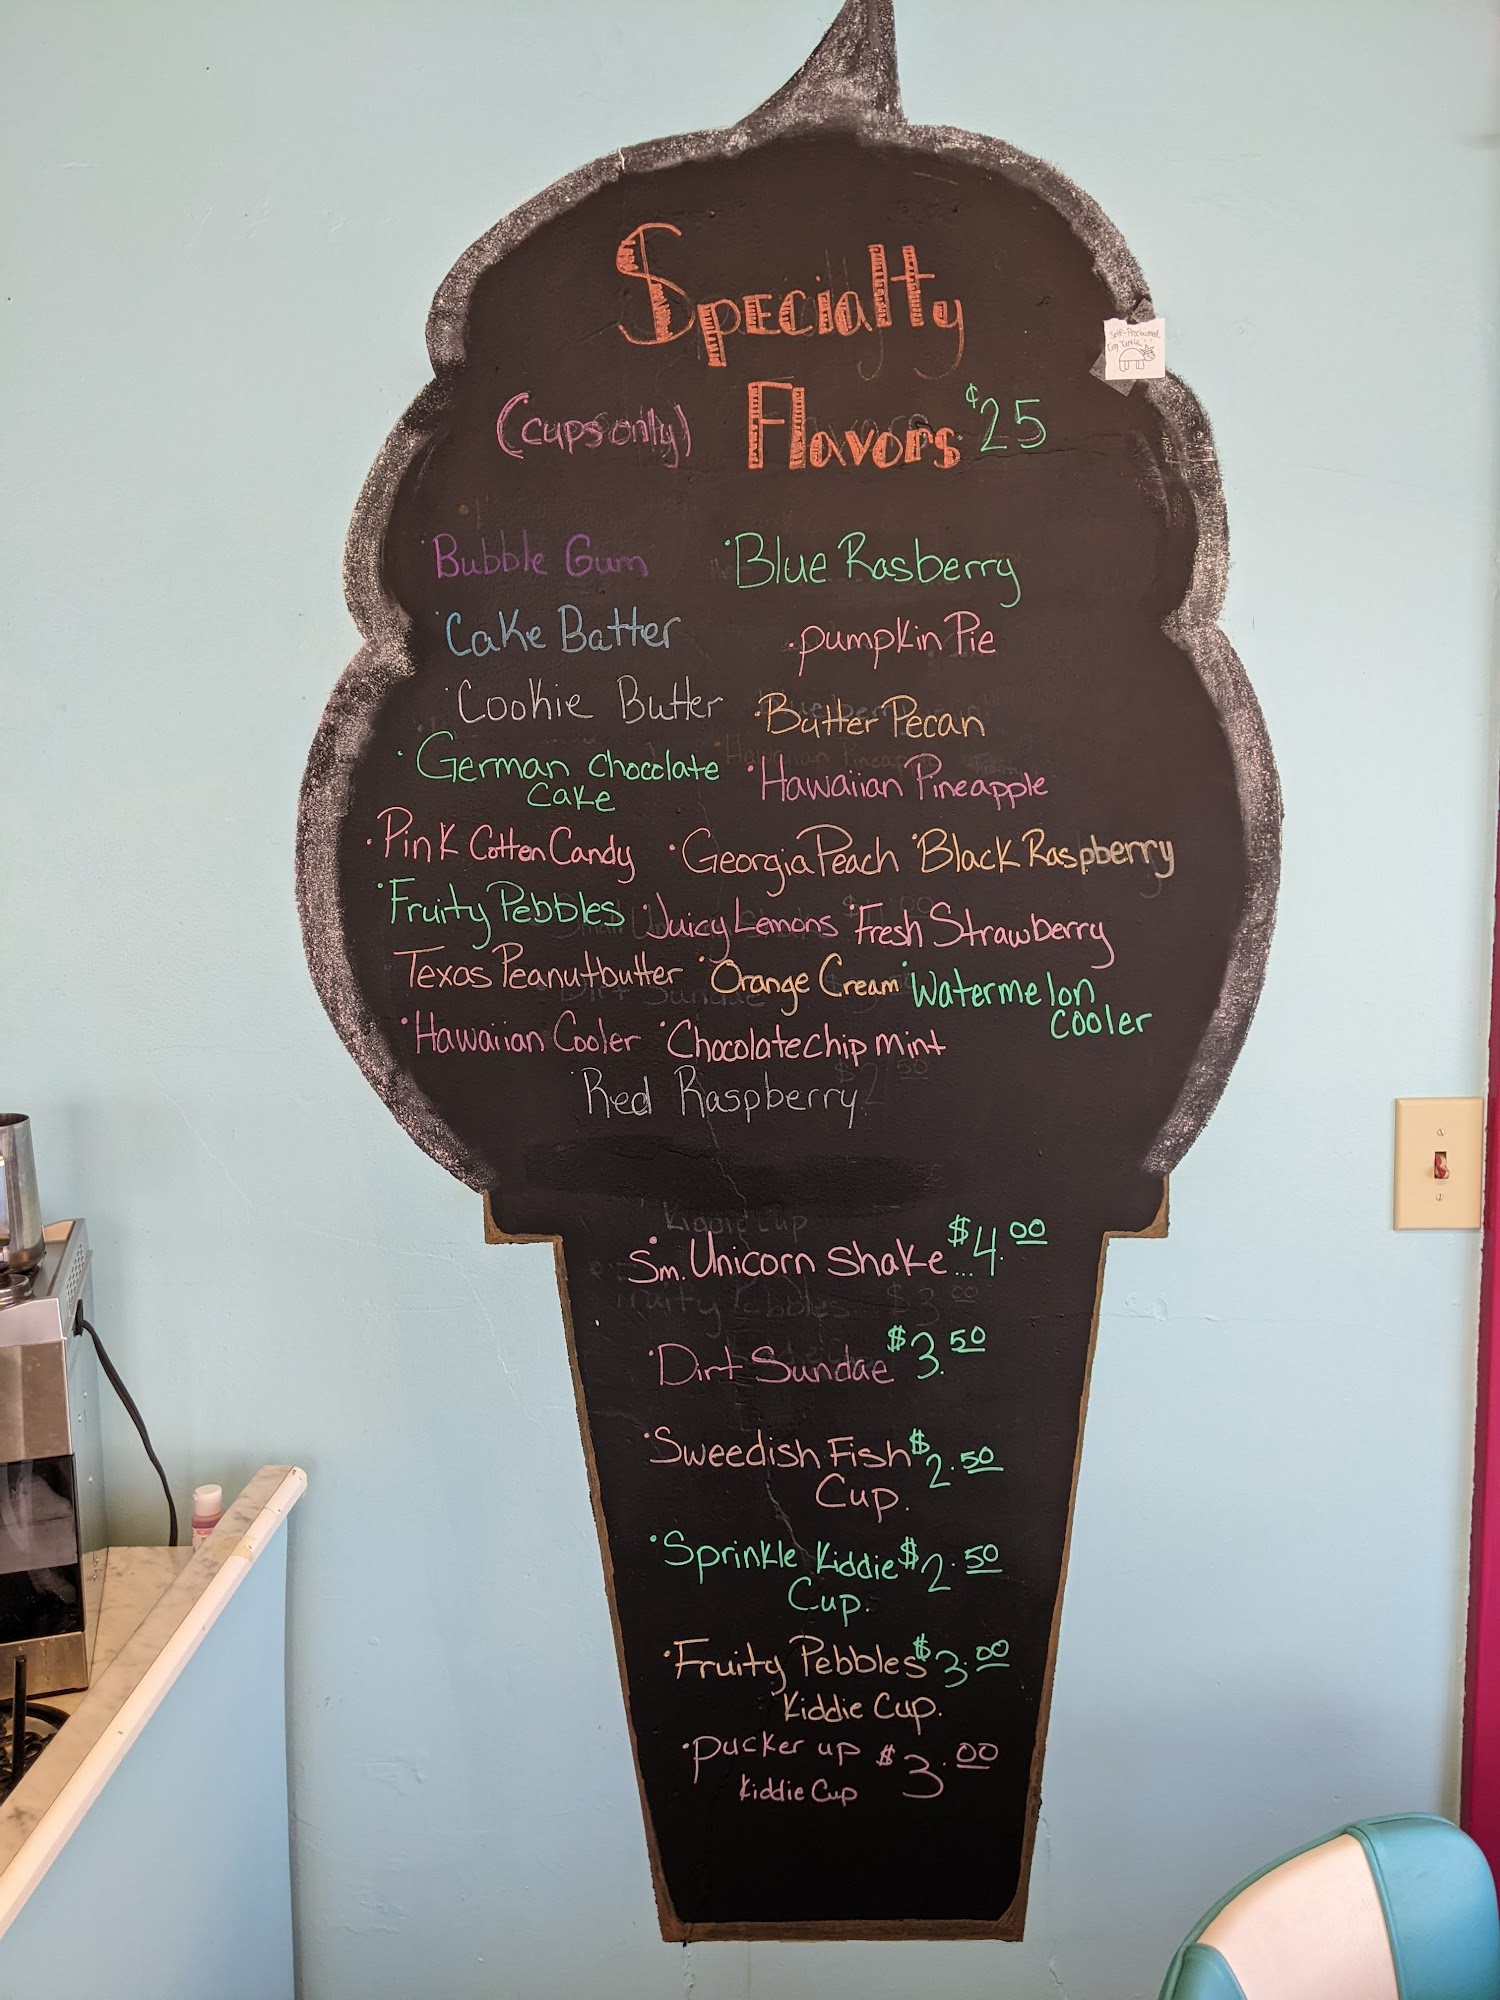 Specialty
(cups only) Flavors ¢25
Self-Proclaimed
King Turtle
·Bubble Gum ·Blue Rasberry
·Cake Batter ·pumpkin Pie
·Cookie Butter ·Butter Pecan
·German chocolate
cake
·Hawaiian Pineapple
·Pink Cotten Candy ·Georgia Peach ·Black Raspberry
·Fruity Pebbles ·Juicy Lemons ·Fresh Strawberry
·Texas Peanutbutter ·Orange Cream ·Watermelon
cooler
·Hawaiian Cooler ·Chocolate chip mint
·Red Raspberry
Kiddie Cup
·Sm. Unicorn Shake...$4.00
Fruity Pebbles $3.00
·Dirt Sundae $3.50
·Sweedish Fish $2.50
Cup.
·Sprinkle Kiddie $2.50
Cup.
·Fruity Pebbles $3.00
Kiddie Cup.
·pucker up $3.00
Kiddie Cup